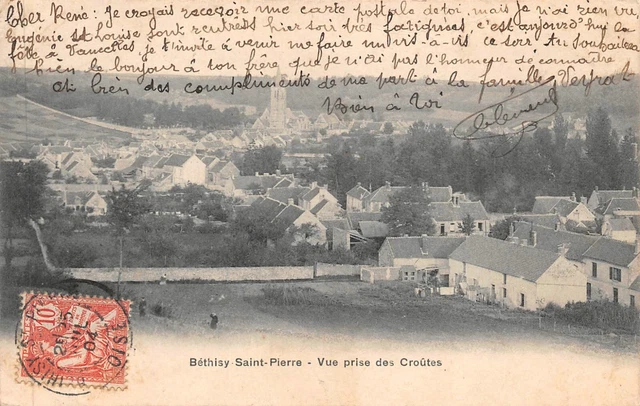 Cher René: Je croyais recevoir une carte postale de toi mais je n'ai rien vu
Eugénie et Louise sont rentrées hier soir très fatiguées, c'est aujourd'hui la
fête à Vaucelles, je t'invite à venir me faire un vis-à-vis ce soir. Tu souhaiteras
bien le bonjour à ton frère que je n'ai pas l'honneur de connaître
et bien des compliments de ma part à la famille
Bien à toi
Clément
10
OISE
Béthisy Saint-Pierre - Vue prise des Croûtes